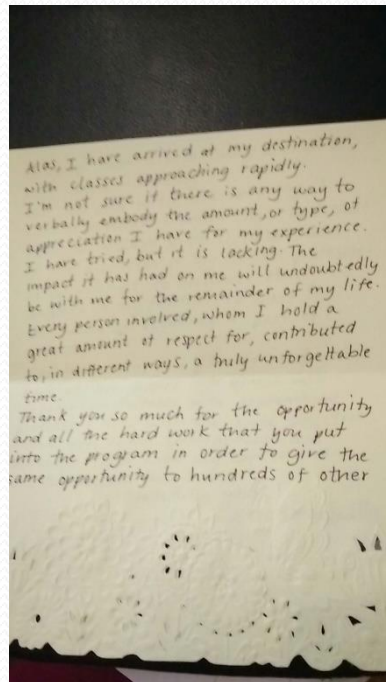 Alas, I have arrived at my destination,
with classes approaching rapidly.
I'm not sure if there is any way to
verbally embody the amount, or type, of
appreciation I have for my experience.
I have tried, but it is lacking. The
impact it has had on me will undoubtedly
be with me for the remainder of my life.
Every person involved, whom I hold a
great amount of respect for, contributed
to, in different ways, a truly unforgettable
time.
Thank you so much for the opportunity
and all the hard work that you put
into the program in order to give the
same opportunity to hundreds of other